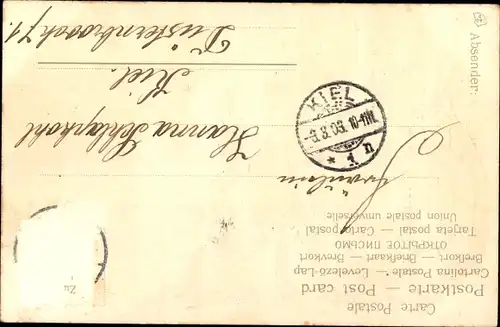 Carte Postale
Postkarte — Post card
Cartolina Postale — Levelező-Lap
Brefkort — Briefkaart — Brevkort
ОТКРЫТОЕ ПИСЬМО
Tarjeta postal — Carto postal
Union postale universelle
Absender:
KIEL
3.8.03. 10-11N.
* 1 n
Fräulein
Hanna Schlapkohl
Kiel.
Düsternbrook 71.
Zu